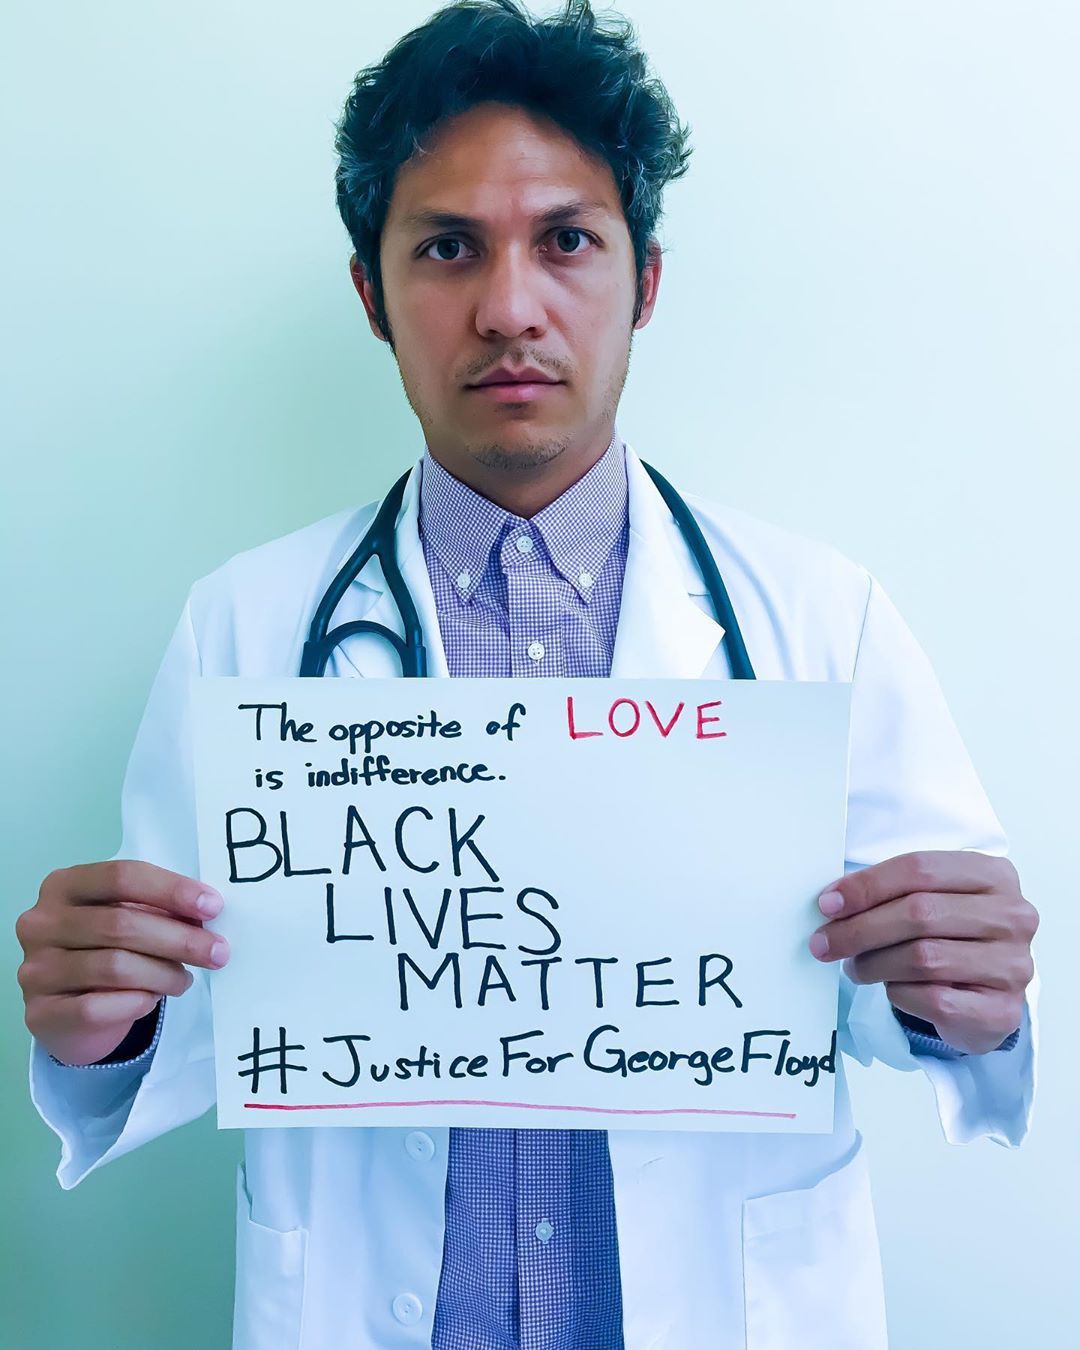 The opposite of LOVE
is indifference.
BLACK
LIVES
MATTER
#JusticeForGeorgeFloyd